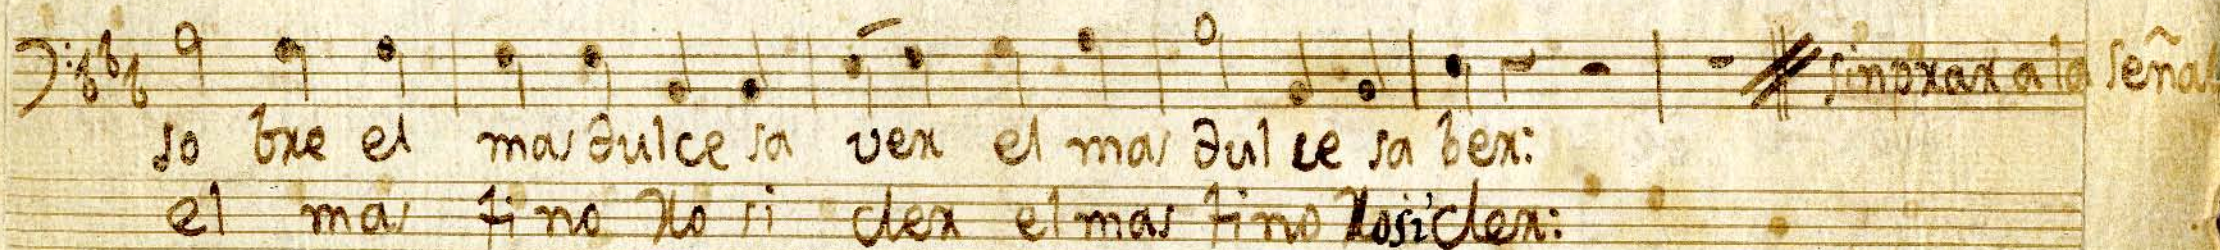 sin parar a la señal
so bre el mas dulce sa ver el mas dul ce sa ber:
el mas fi no Ro si cler el mas fino Rosicler: